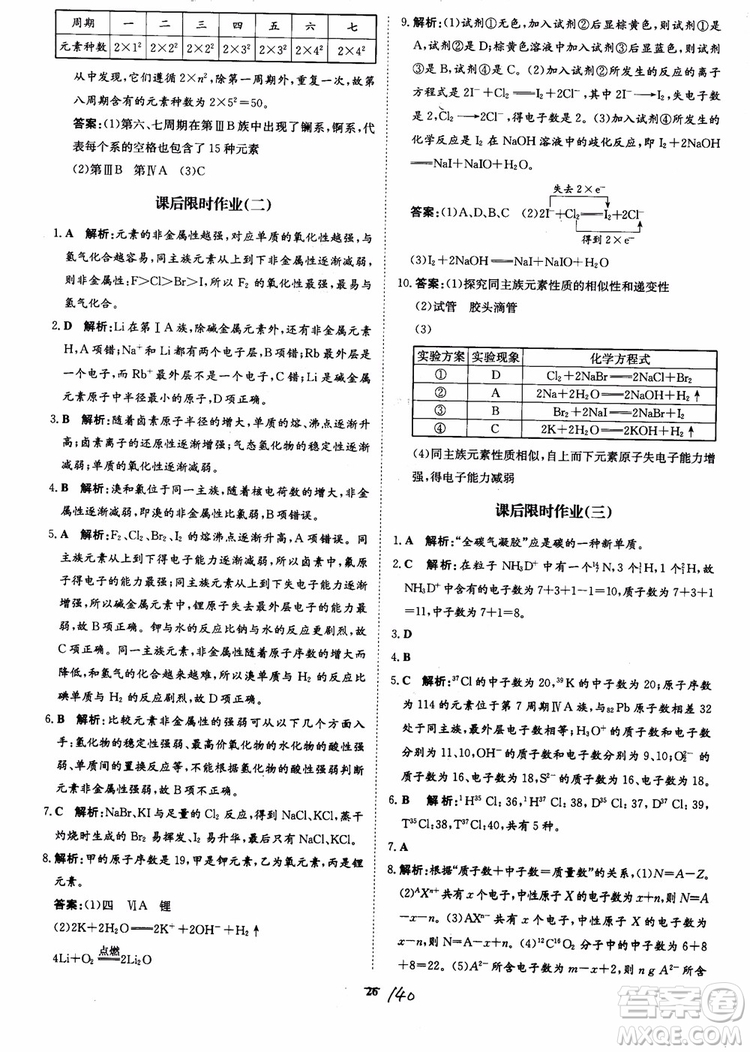 周期 一 二 三 四 五 六 七
元素种数 2×1² 2×2² 2×2² 2×3² 2×3² 2×4² 2×4²
从中发现，它们遵循 2×n²，除第一周期外，重复一次，故第
八周期含有的元素种数为 2×5²=50。
答案：(1)第六、七周期在第ⅢB族中出现了镧系，锕系，代
表每个系的空格也包含了 15 种元素
(2)第ⅢB 第ⅣA (3)C
课后限时作业(二)
1. A 解析：元素的非金属性越强，对应单质的氧化性越强，与
氢气化合越容易，同主族元素从上到下非金属性逐渐减弱，
则非金属性：F>Cl>Br>I，所以 F₂ 的氧化性最强，最易与
氢气化合。
2. D 解析：Li 在第ⅠA族，除碱金属元素外，该族元素还有
H，A 项错；Na⁺ 和 Li 都有两个电子层，B 项错；Rb 最外层
电子数为 1，属于碱金属元素，C 项错；碱金属元素中，Li 元
素原子中半径最小的，D 项正确。
3. B 解析：随着卤素原子半径的增大，单质的熔、沸点逐渐升
高；卤素离子的还原性逐渐增强；气态氢化物的稳定性逐渐
减弱；单质的氧化性逐渐减弱。
4. B 解析：溴和氯位于同一主族，随核电荷数的增大，非金属
性逐渐减弱，即溴的非金属性弱于氯的非金属性。
5. A 解析：F₂、Cl₂、Br₂、I₂ 的熔沸点逐渐升高，A 项错误。同
主族元素从上到下失电子能力增强，所以卤素中，氟原子
得电子的能力最强；碱金属元素中，锂原子失去最外层电
子的能力最弱，故 B 项正确。钾与水的反应比钠与水的反
应更剧烈，C 项正确。同主族元素随着原子序数的增大而
降低，和氢气化合越来越难，所以溴单质与 H₂ 的反应比
碘单质与 H₂ 的反应剧烈，故 D 项正确。
6. B 解析：比较元素非金属性的强弱可以从以下几个方面入
手：氢化物的稳定性强弱、最高价氧化物的水化物的酸性强
弱、单质间的置换反应等，不能依据氢化物的酸性强弱判断
元素非金属性的强弱，所以 B 不正确。
7. C 解析：NaBr、KI 与足量的 Cl₂ 反应生成 NaCl、KCl，蒸干
灼烧时生成的 Br₂ 易挥发、I₂ 易升华，故剩余 NaCl、KCl。
8. 解析：甲的原子序数是 19，甲是钾元素，由此可知乙是锂
元素。
答案：(1)四 ⅥA 锂
(2)2K+2H₂O══2K⁺+2OH⁻+H₂↑
4Li+O₂ 点燃══ 2Li₂O
9. 解析：(1)加入试剂①无色，加入试剂②后显棕黄色，
A 是试剂②为 D；棕黄色溶液中加入试剂③后显蓝色，则试
剂③是 C。(2)加入试剂②所发生的反应的离子
方程式是 2I⁻+Cl₂══I₂+2Cl⁻，其中 2I⁻→I₂，失电子数
为 2，Cl₂→2Cl⁻，得电子数为 2。(3)加入试剂④所发生的
化学反应应是 I₂ 在 NaOH 溶液中的歧化反应，即 I₂+
2NaOH══NaI+NaIO+H₂O。
失去 2×e⁻
答案：(1)A、D、B、C (2)2I⁻+Cl₂══I₂+2Cl⁻
得到 2×e⁻
(3)I₂+2NaOH══NaI+NaIO+H₂O
10. 答案：(1)探究同主族元素性质的相似性和递变性
(2)试管 胶头滴管
(3)
实验方案 实验现象 化学方程式
① D Cl₂+2NaBr══2NaCl+Br₂
② A 2Na+2H₂O══2NaOH+H₂↑
③ B Br₂+2NaI══2NaBr+I₂
④ C 2K+2H₂O══2KOH+H₂↑
(4)同主族元素性质相似，自上而下元素原子失电子能力增
强，得电子能力减弱
课后限时作业(三)
1. A 解析：“全碳气凝胶”应是碳的一种新单质。
2. C 解析：在粒子 NH₃D⁺ 中含有一个 ¹⁴₇N，3 个 ¹₁H，1 个 ²₁H，故
NH₃D⁺ 的电子数为 7+3+1-1=10，质子数为 7+3+1=
11，中子数为 7+1=8。
3. D
4. B
5. C 解析：³⁷Cl 的中子数为 20，³⁹K 的中子数为 20；原子序数
为 114 的元素位于第 7 周期ⅣA族，与₈₂Pb 原子序数相差 32
处于同主族，最外层电子数相等；H₃O⁺ 的质子数和电子数
分别为 11、10，OH⁻ 的质子数和电子数分别为 9、10；O₂²⁻ 的
质子数为 16、电子数为 18，S²⁻ 的质子数为 16、电子数为 18。
6. B 解析：¹H³⁵Cl：36，¹H³⁷Cl：38，²D³⁵Cl：37，²D³⁷Cl：39，
T³⁵Cl：38，T³⁷Cl：40，共有 5 种。
7. A
8. 解析：(1)根据“质子数+中子数=质量数”的关系可得 A-Z。
(2)ᴬXⁿ⁺ 中共有 x 个电子，则中性原子 X 的电子数为 x+n，
N=A-x-n。(3)AXⁿ⁻ 中，中性原子 X 的电子数为 x-n，
N=A-x+n。(4)¹²C¹⁶O₂ 分子中的中子数为 6+8
+8=22。(5)A²⁻ 所含电子数为 m-x+n，所以 n g A²⁻ 所含电子数
26
140
答案圈